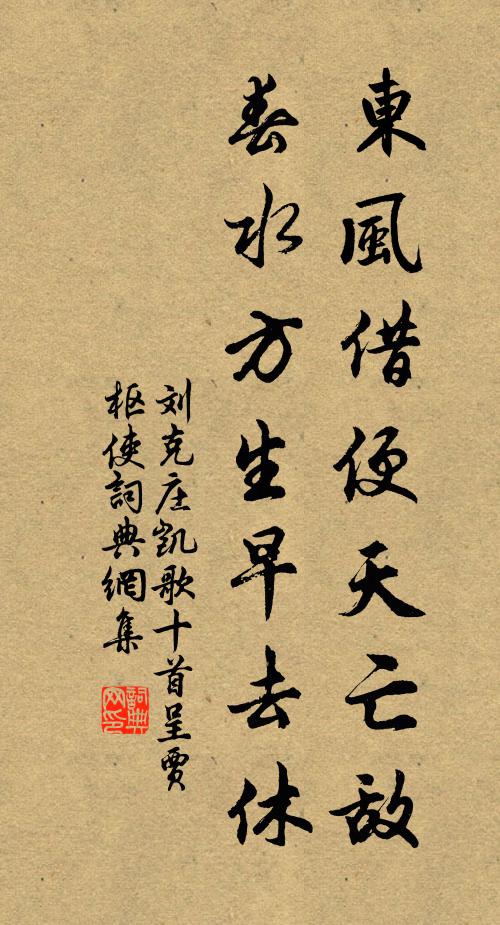 東風借便天亡敌
春水方生早去休
刘克庄凯歌十首呈贾
枢使詞典網集
詞典网印